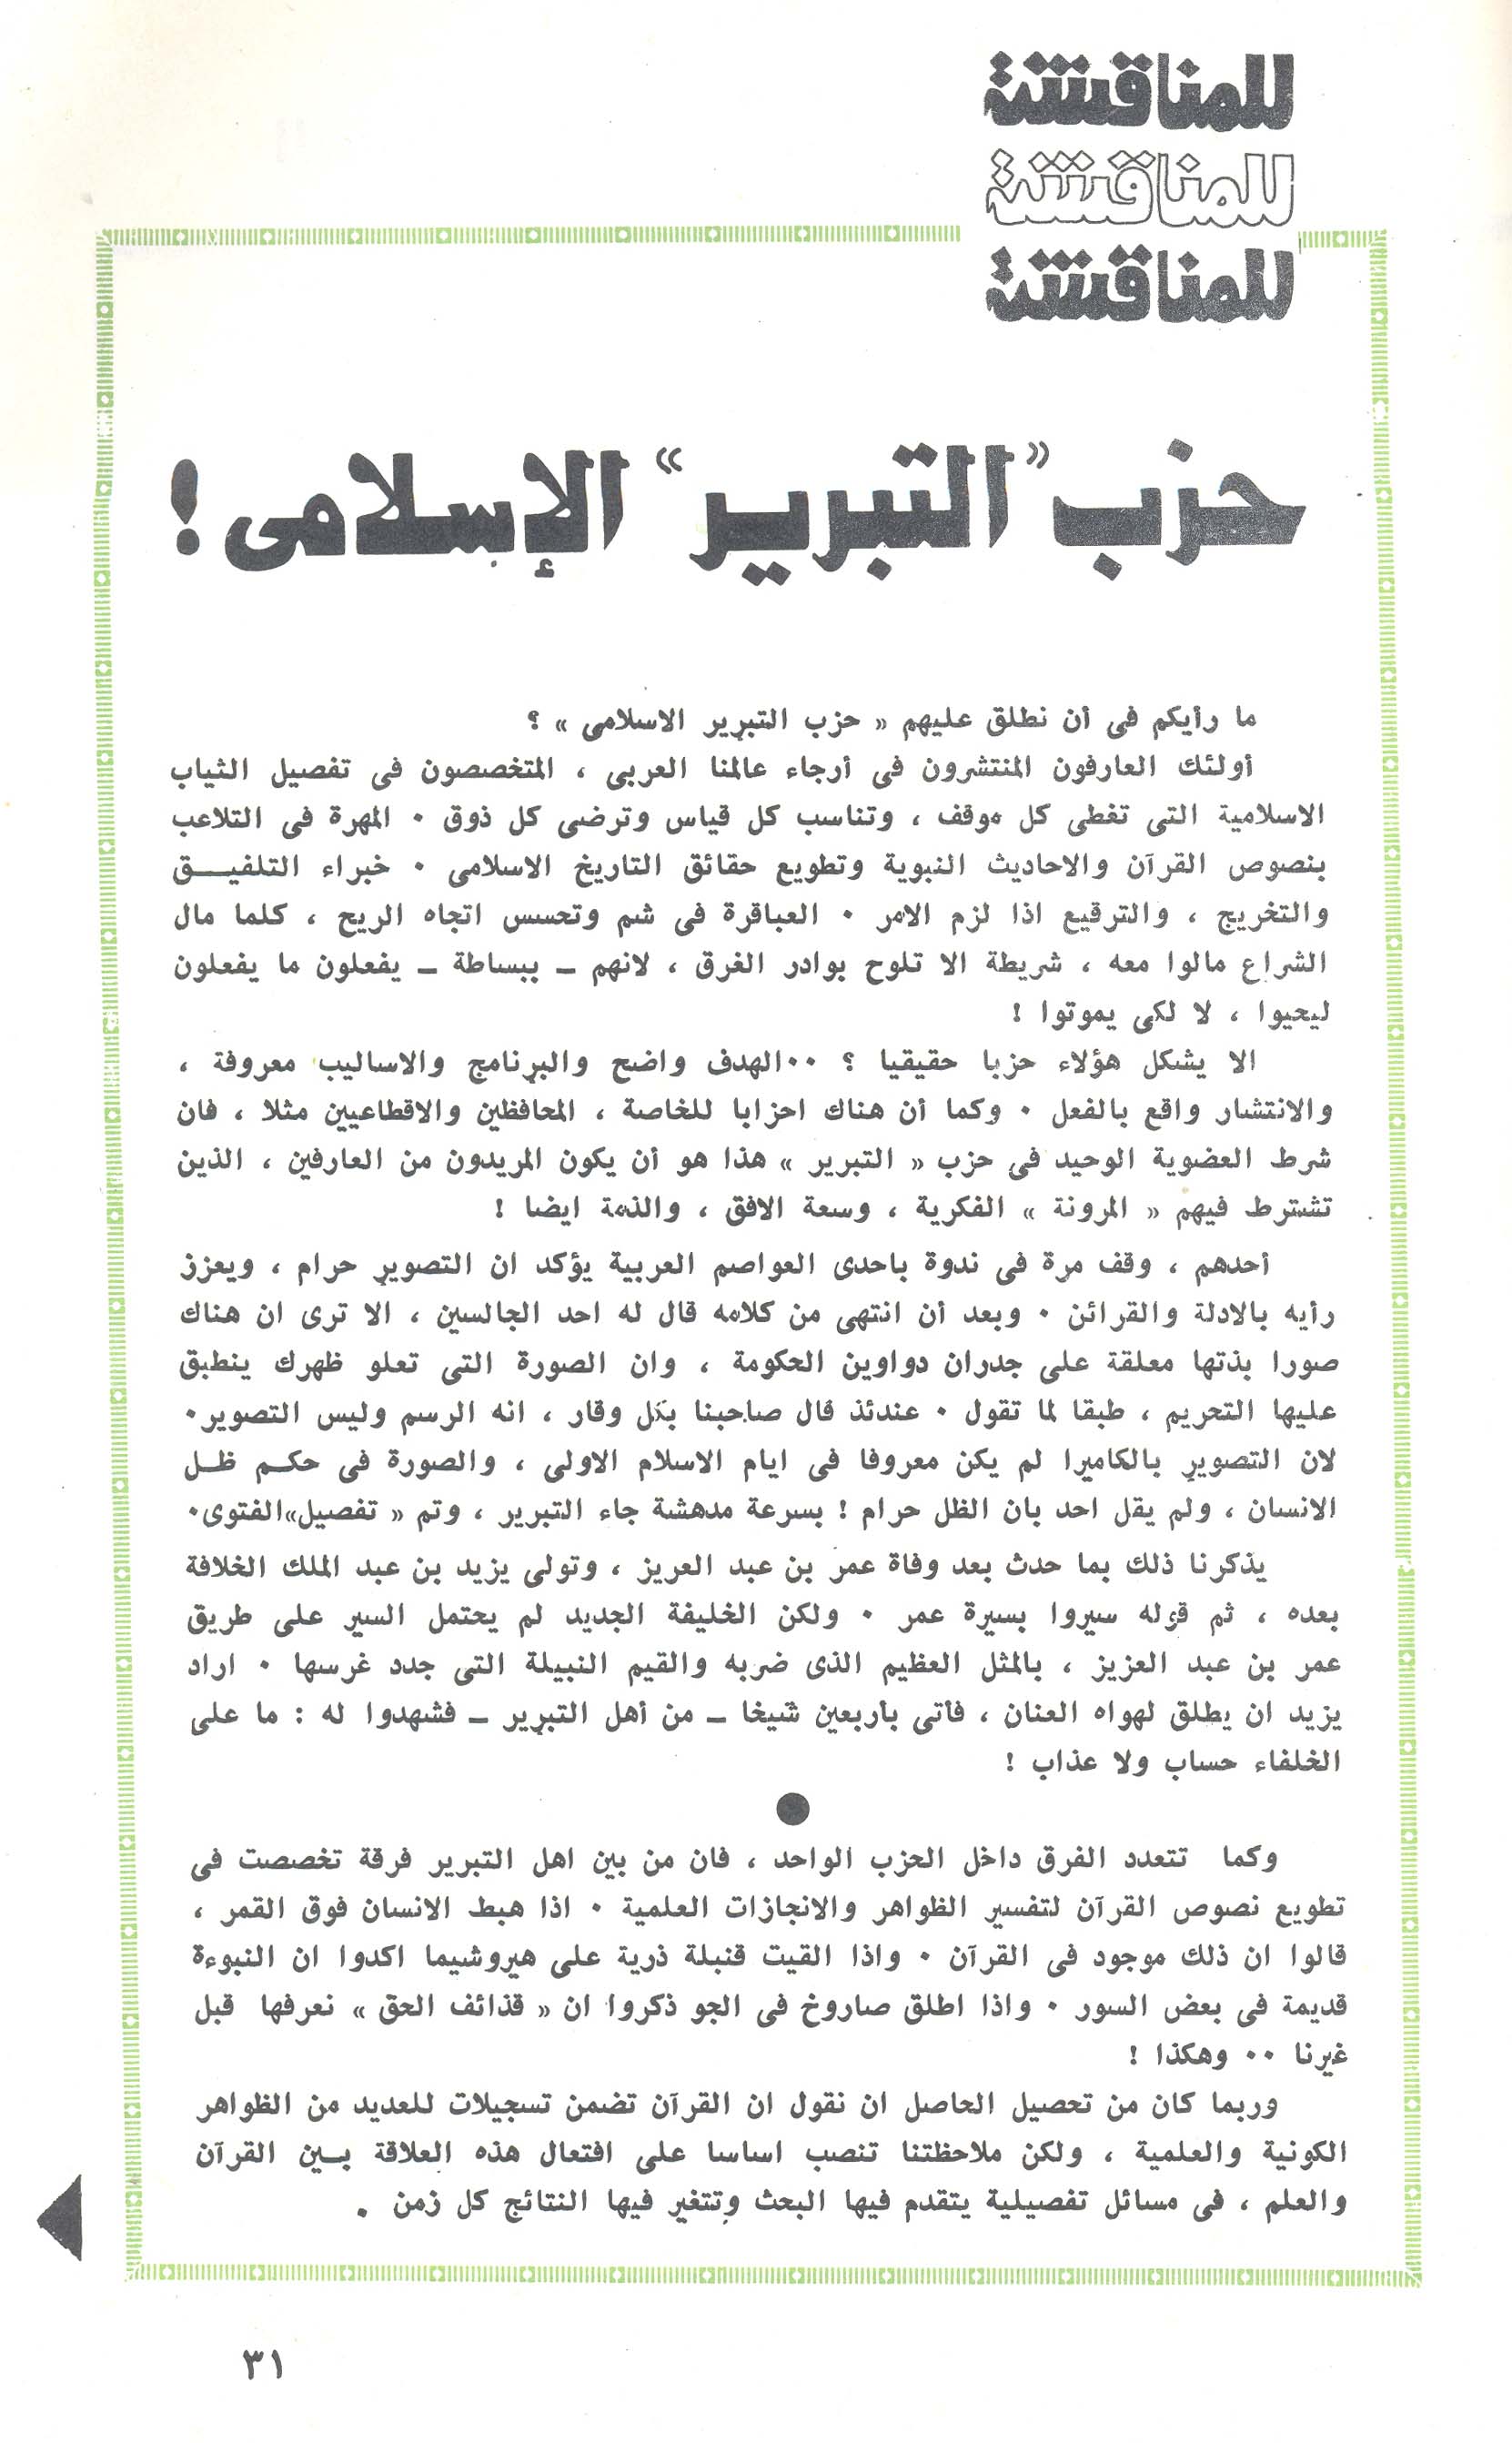 للمناقشة
للمناقشة
للمناقشة
حزب "التبرير" الإسلامى !
ما رأيكم فى أن نطلق عليهم « حزب التبرير الاسلامى » ؟
أولئك العارفون المنتشرون فى أرجاء عالمنا العربى ، المتخصصون فى تفصيل الثياب
الاسلامية التى تغطى كل موقف ، وتناسب كل قياس وترضى كل ذوق ٠ المهرة فى التلاعب
بنصوص القرآن والاحاديث النبوية وتطويع حقائق التاريخ الاسلامى ٠ خبراء التلفيــق
والتخريج ، والترقيع اذا لزم الامر ٠ العباقرة فى شم وتحسس اتجاه الريح ، كلما مال
الشراع مالوا معه ، شريطة الا تلوح بوادر الغرق ، لانهم ــ ببساطة ــ يفعلون ما يفعلون
ليحيوا ، لا لكى يموتوا !
الا يشكل هؤلاء حزبا حقيقيا ؟ ٠٠الهدف واضح والبرنامج والاساليب معروفة ،
والانتشار واقع بالفعل ٠ وكما أن هناك احزابا للخاصة ، المحافظين والاقطاعيين مثلا ، فان
شرط العضوية الوحيد فى حزب « التبرير » هذا هو أن يكون المريدون من العارفين ، الذين
تشترط فيهم « المرونة » الفكرية ، وسعة الافق ، والذمة ايضا !
أحدهم ، وقف مرة فى ندوة باحدى العواصم العربية يؤكد ان التصوير حرام ، ويعزز
رأيه بالادلة والقرائن ٠ وبعد أن انتهى من كلامه قال له احد الجالسين ، الا ترى ان هناك
صورا بذتها معلقة على جدران دواوين الحكومة ، وان الصورة التى تعلو ظهرك ينطبق
عليها التحريم ، طبقا لما تقول ٠ عندئذ قال صاحبنا بكل وقار ، انه الرسم وليس التصوير٠
لان التصوير بالكاميرا لم يكن معروفا فى ايام الاسلام الاولى ، والصورة فى حكـم ظـل
الانسان ، ولم يقل احد بان الظل حرام ! بسرعة مدهشة جاء التبرير ، وتم « تفصيل»الفتوى٠
يذكرنا ذلك بما حدث بعد وفاة عمر بن عبد العريز ، وتولى يزيد بن عبد الملك الخلافة
بعده ، ثم قوله سيروا بسيرة عمر ٠ ولكن الخليفة الجديد لم يحتمل السير على طريق
عمر بن عبد العزيز ، بالمثل العظيم الذى ضربه والقيم النبيلة التى جدد غرسها ٠ اراد
يزيد ان يطلق لهواه العنان ، فأتى بأربعين شيخا ــ من أهل التبرير ــ فشهدوا له : ما على
الخلفاء حساب ولا عذاب !
وكما تتعدد الفرق داخل الحزب الواحد ، فان من بين اهل التبرير فرقة تخصصت فى
تطويع نصوص القرآن لتفسير الظواهر والانجازات العلمية ٠ اذا هبط الانسان فوق القمر ،
قالوا ان ذلك موجود فى القرآن ٠ واذا القيت قنبلة ذرية على هيروشيما اكدوا ان النبوءة
قديمة فى بعض السور ٠ واذا اطلق صاروخ فى الجو ذكروا ان « قذائف الحق » نعرفها قبل
غيرنا ٠٠ وهكذا !
وربما كان من تحصيل الحاصل ان نقول ان القرآن تضمن تسجيلات للعديد من الظواهر
الكونية والعلمية ، ولكن ملاحظتنا تنصب اساسا على افتعال هذه العلاقة بـين القرآن
والعلم ، فى مسائل تفصيلية يتقدم فيها البحث وتتغير فيها النتائج كل زمن .
٣١